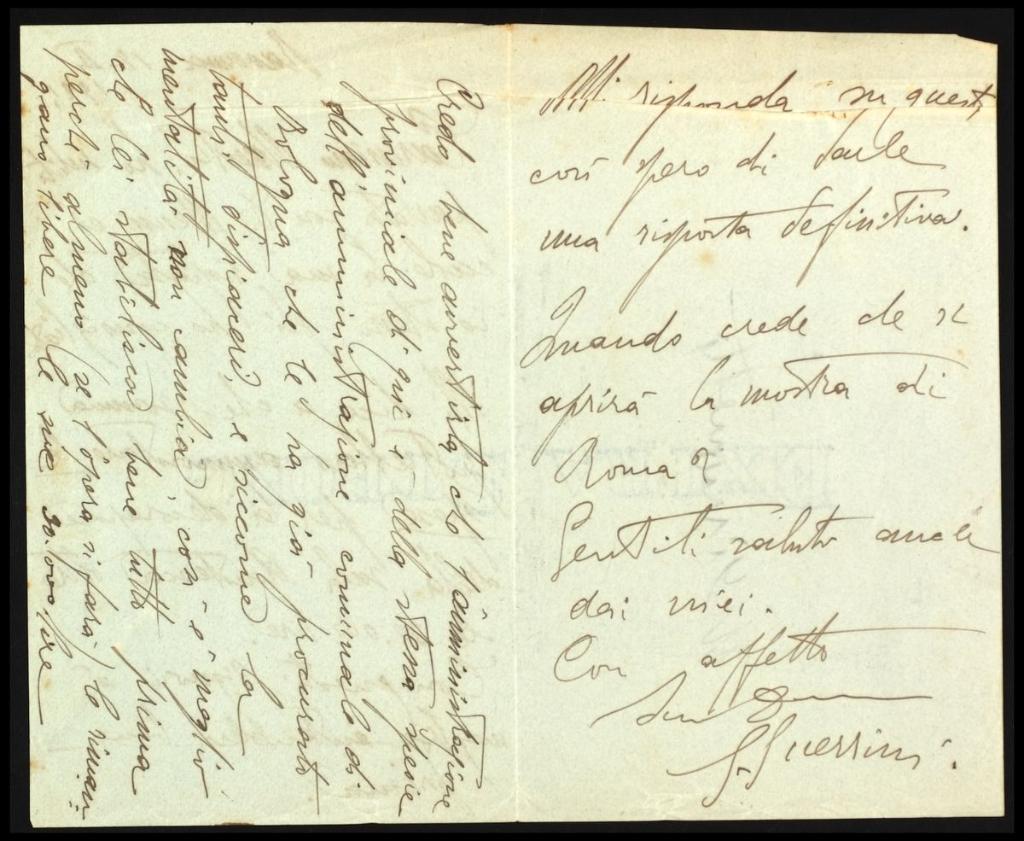 Mi risponda su questo
così spero di darle
una risposta definitiva.
Quando crede che si
aprirà la mostra di
Roma?
Gentili saluti anche
dai miei.
Con affetto
Suo
G. Guerrini.
Credo bene avvertirla che l'amministrazione
provinciale di qui è della stessa specie
dell'amministrazione comunale di
Bologna che le ha già procurato
tanti dispiaceri, e siccome la
mentalità non cambia, così è meglio
che lei stabilisca bene tutto prima
perchè almeno se l'opera si farà le riman-
gano libere le sue 30.000 lire